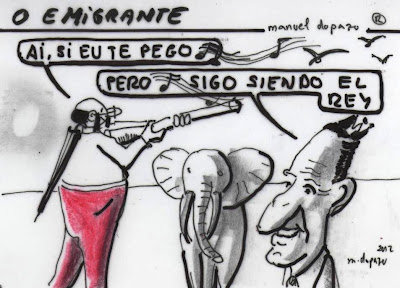 O EMIGRANTE
manuel dopazo
R
AI, SI EU TE PEGO
PERO SIGO SIENDO EL
REY
2012
m. dopazo